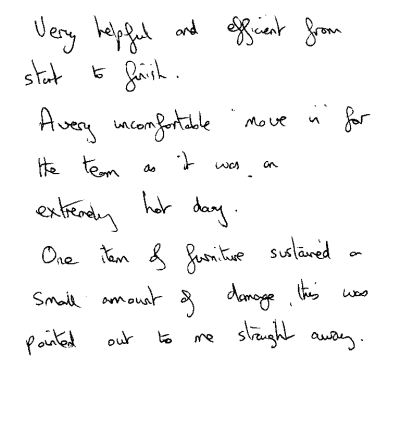 Very helpful and efficient from
start to finish.
A very uncomfortable "move in" for
the team as it was an
extremely hot day.
One item of furniture sustained a
small amount of damage, this was
pointed out to me straight away.